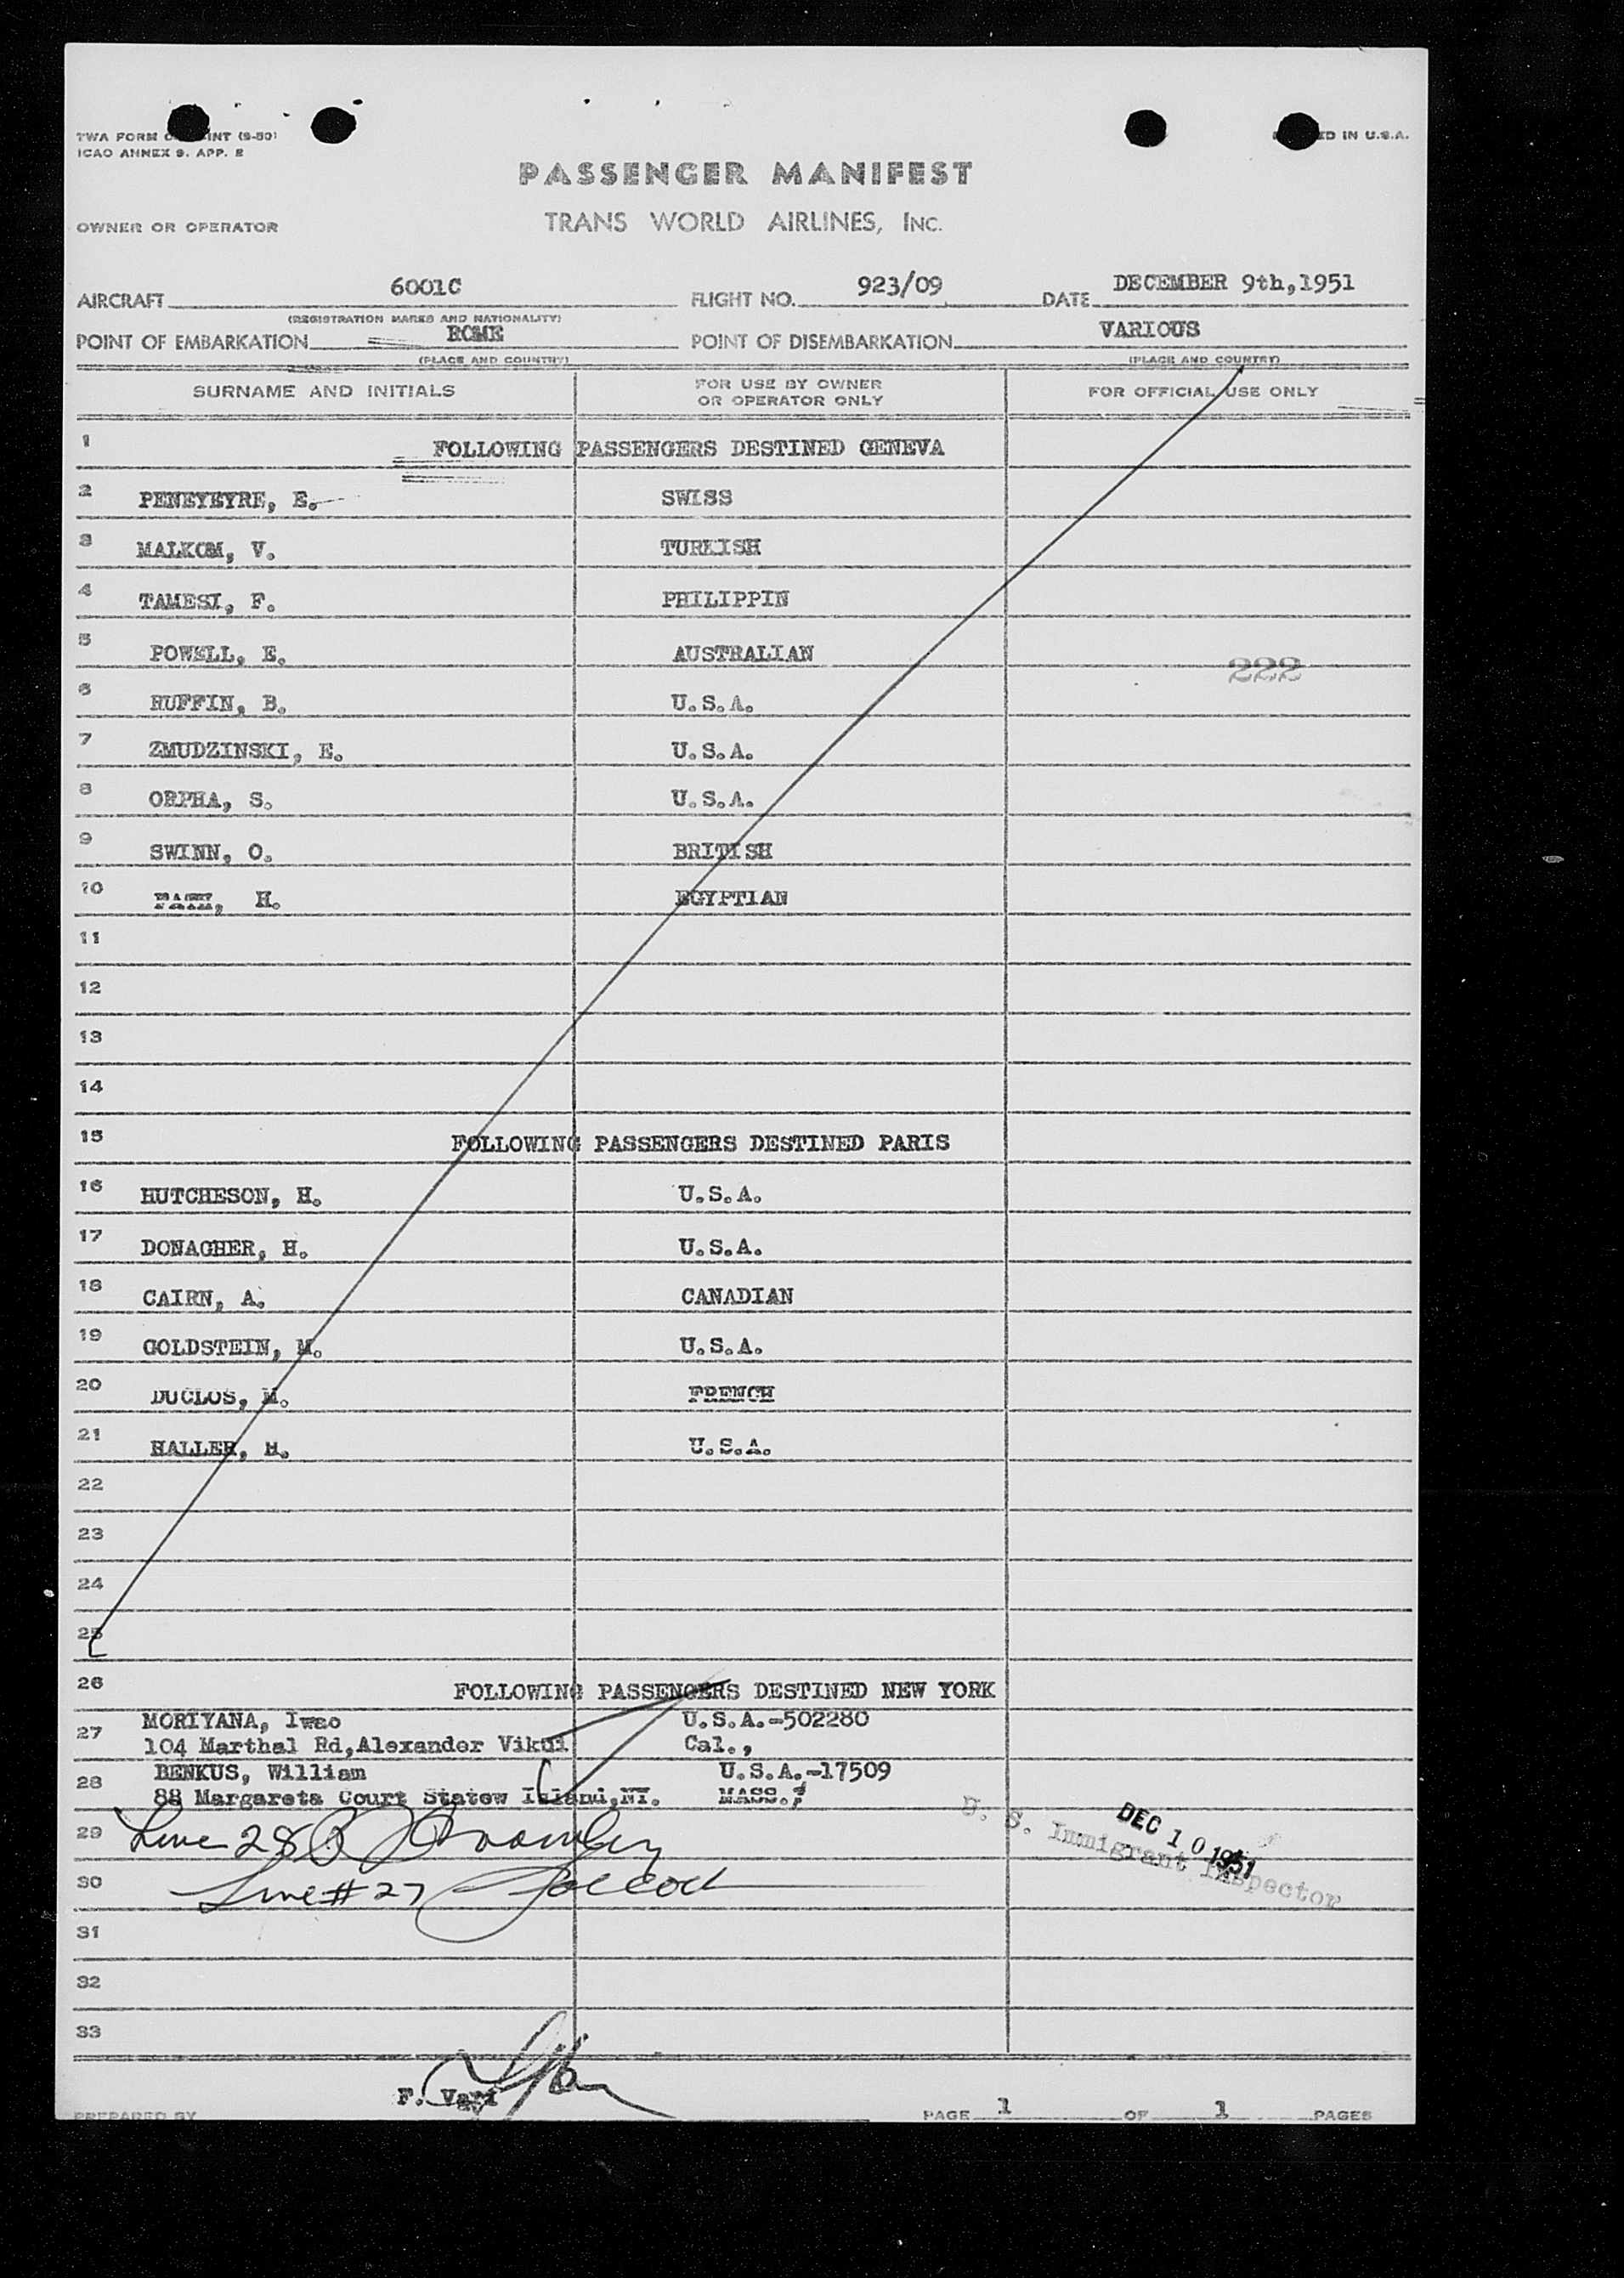 TWA FORM INT (9-50)
ICAO ANNEX 9. APP. 2
ED IN U.S.A.
PASSENGER MANIFEST
OWNER OR OPERATOR
TRANS WORLD AIRLINES, INC.
AIRCRAFT 6001C FLIGHT NO. 923/09 DATE DECEMBER 9th,1951
(REGISTRATION MARKS AND NATIONALITY)
POINT OF EMBARKATION ROME POINT OF DISEMBARKATION VARIOUS
(PLACE AND COUNTRY) (PLACE AND COUNTRY)
SURNAME AND INITIALS FOR USE BY OWNER OR OPERATOR ONLY FOR OFFICIAL USE ONLY
1 FOLLOWING PASSENGERS DESTINED GENEVA
2 PENEYEYRE, E. SWISS
3 MALKOM, V. TURKISH
4 TAMESI, F. PHILIPPIN
5 POWELL, E. AUSTRALIAN 222
6 RUFFIN, B. U.S.A.
7 ZMUDZINSKI, E. U.S.A.
8 ORPHA, S. U.S.A.
9 SWINN, O. BRITISH
10 H. EGYPTIAN
11
12
13
14
15 FOLLOWING PASSENGERS DESTINED PARIS
16 HUTCHESON, H. U.S.A.
17 DONAGHER, H. U.S.A.
18 CAIRN, A. CANADIAN
19 GOLDSTEIN, M. U.S.A.
20 DUCLOS, M. FRENCH
21 HALLER, M. U.S.A.
22
23
24
25
26 FOLLOWING PASSENGERS DESTINED NEW YORK
27 MORIYANA, Iwao U.S.A.-502280
104 Marthal Rd,Alexander Cal.,
28 BENKUS, William U.S.A.-17509
88 Margareta Court Statew Island,NY. MASS.,
29 Line 28
30 Line # 27
U. S. Immigrant Inspector
DEC 10 1951
31
32
33
F. Vari
PREPARED BY PAGE 1 OF 1 PAGES